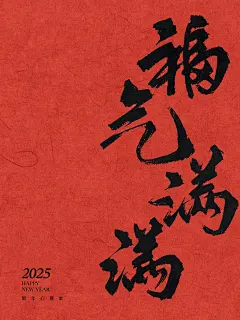 福气满满
2025
HAPPY
NEW YEAR